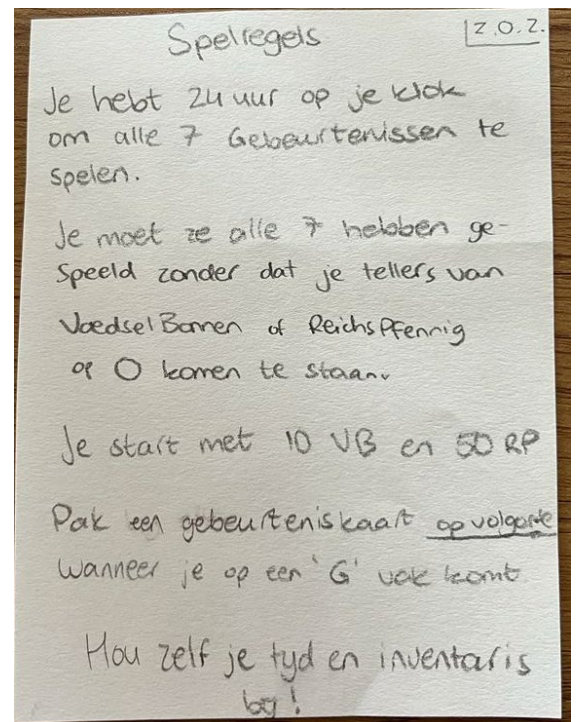 Spelregels
Z.O.Z.
Je hebt 24 uur op je klok
om alle 7 Gebeurtenissen te
spelen.
Je moet ze alle 7 hebben ge-
speeld zonder dat je tellers van
VoedselBonnen of ReichsPfennig
op 0 komen te staan.
Je start met 10 VB en 50 RP
Pak een gebeurteniskaart op volgorde
wanneer je op een 'G' vak komt
Hou zelf je tyd en inventaris
by!